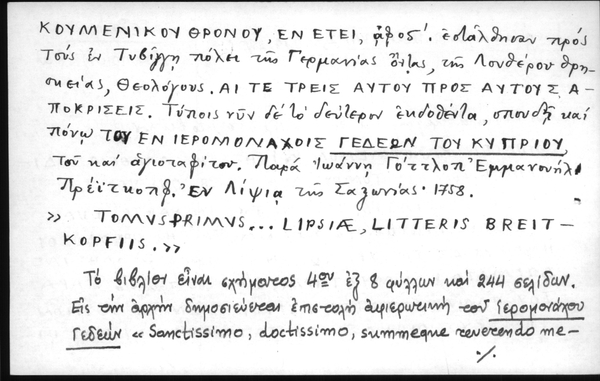 ΚΟΥΜΕΝΙΚΟΥ ΘΡΟΝΟΥ, ΕΝ ΕΤΕΙ, ͵αφος΄. ἐστάλθησαν πρὸς
τοὺς ἐν Τυβίγγῃ πόλει τῆς Γερμανίας ὄντας, τῆς Λουθέρου θρη-
σκείας, Θεολόγους. ΑΙ ΤΕ ΤΡΕΙΣ ΑΥΤΟΥ ΠΡΟΣ ΑΥΤΟΥΣ Α-
ΠΟΚΡΙΣΕΙΣ. Τύποις νῦν δὲ τὸ δεύτερον ἐκδοθέντα, σπουδῇ καὶ
πόνῳ ΤΟΥ ΕΝ ΙΕΡΟΜΟΝΑΧΟΙΣ ΓΕΔΕΩΝ ΤΟΥ ΚΥΠΡΙΟΥ,
τοῦ καὶ ἁγιοταφίτου. Παρὰ Ἰωάννῃ Γόττλοπ Ἐμμανουὴλ
Πρέϊτκοπφ. Ἐν Λίψιᾳ τῆς Σαξωνίας. 1758.
» TOMVS PRIMVS... LIPSIÆ, LITTERIS BREIT-
KOPFIIS. »
Τὸ βιβλίον εἶναι σχήματος 4ου ἐξ 8 φύλλων καὶ 244 σελίδων.
Εἰς τὴν ἀρχὴν δημοσιεύεται ἐπιστολὴ ἀφιερωτικὴ τοῦ ἱερομονάχου
Γεδεὼν « Sanctissimo, doctissimo, summeque reverendo me-
./.